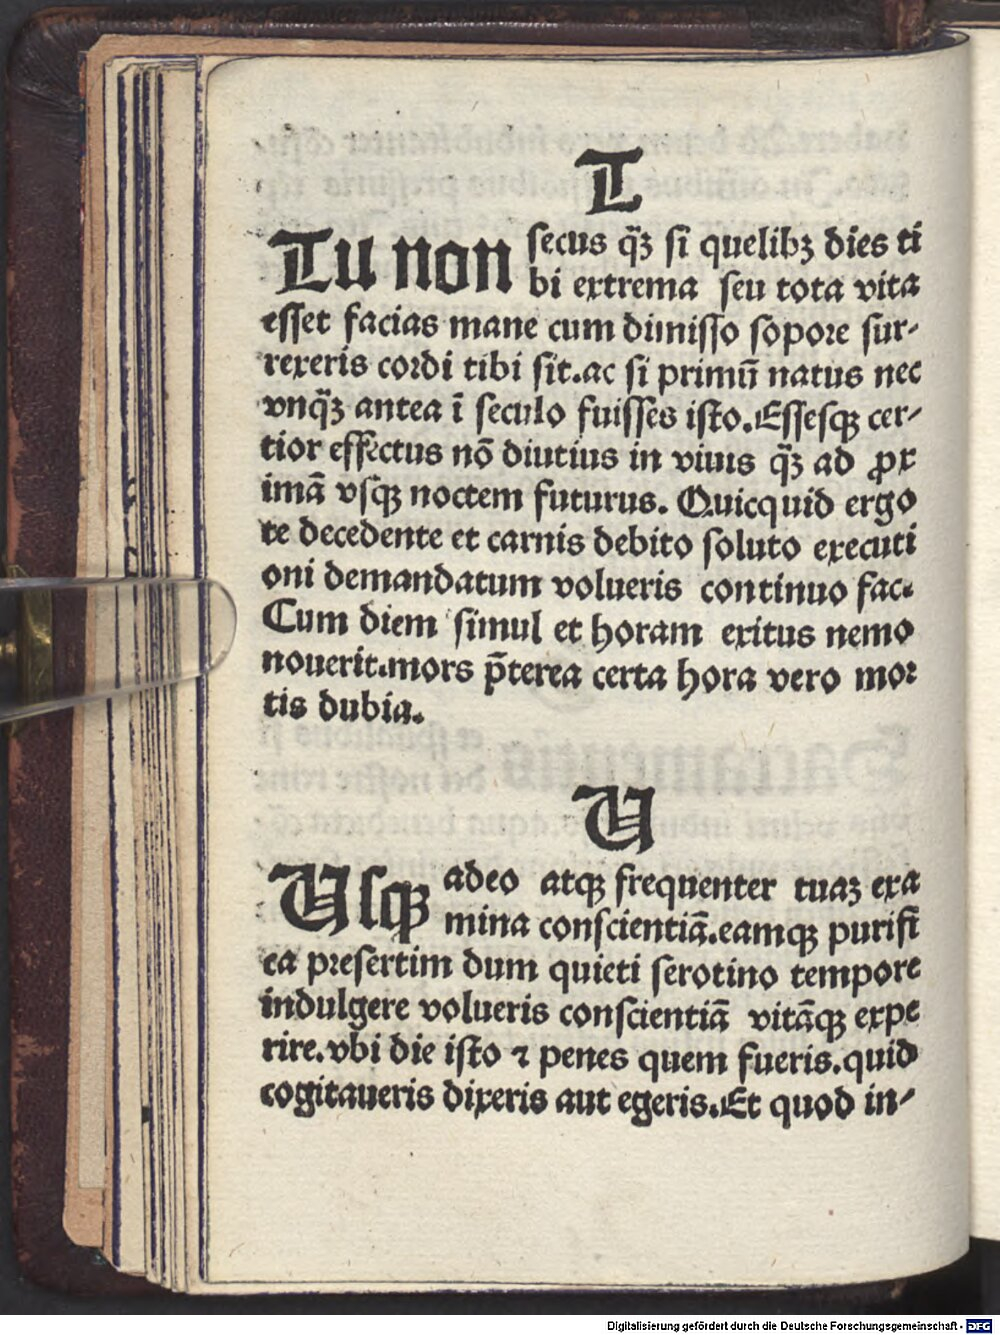 T
Tu non secus qꝫ̃ si quelibꝫ dies ti
bi extrema seu tota vita
esset facias mane cum dimisso sopore sur⸗
rexeris cordi tibi sit.ac si primũ natus nec
vnqꝫ̃ antea ĩ seculo fuisses isto.Essesqꝫ cer⸗
tior effectus nõ diutius in viuis qꝫ̃ ad ꝓx
imã vsqꝫ noctem futurus. Quicquid ergo
te decedente et carnis debito soluto executi
oni demandatum volueris continuo fac.
Cum diem simul et horam exitus nemo
nouerit.mors p̃terea certa hora vero mor
tis dubia.
U
Usqꝫ adeo atqꝫ frequenter tuaꝫ exa
mina conscientiã.eamqꝫ purifi
ca presertim dum quieti serotino tempore
indulgere volueris conscientiã vitãqꝫ expe
rire.vbi die isto ⁊ penes quem fueris.quid
cogitaueris dixeris aut egeris.Et quod in⸗
Digitalisierung gefördert durch die Deutsche Forschungsgemeinschaft - DFG